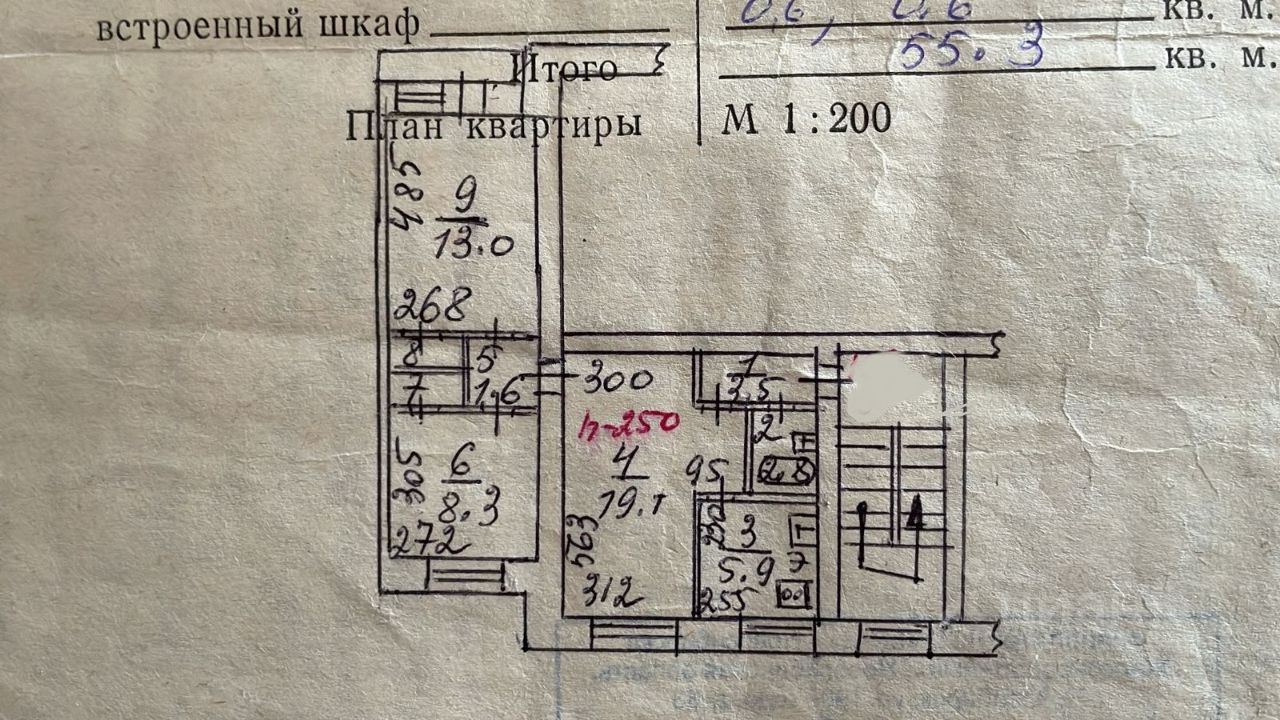 встроенный шкаф
0.6, 0.6 кв. м.
Итого 55.3 кв. м.
План квартиры М 1:200
485
9
13.0
268
8 5
7 1.6
300
1
3.5
h-250
2
2.8
4
19.1
95
305
6
8.3
272
563
312
230
3
5.9
255
Т
Э